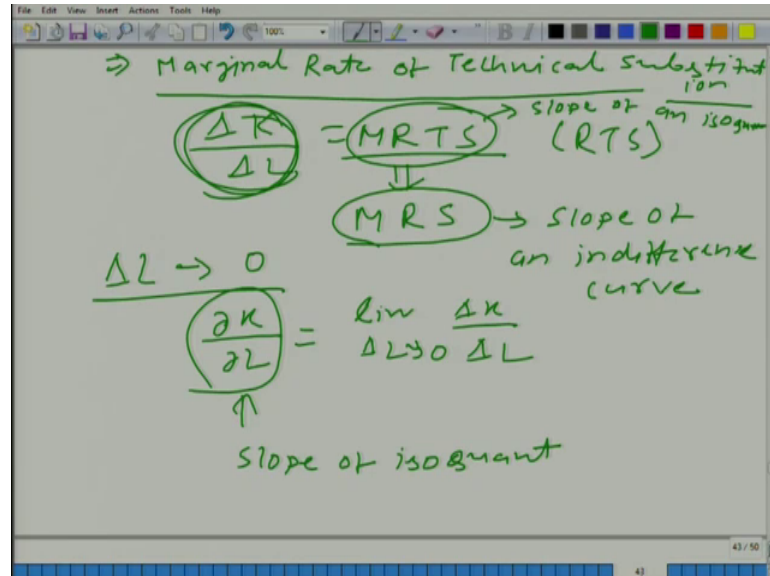 File Edit View Insert Actions Tools Help
100%
B I
⇒ Marginal Rate of Technical substitut
ion
ΔK/ΔL = MRTS → slope of an isoquan
(RTS)
⇓
MRS → slope of
an indifference
curve
ΔL → 0
∂K/∂L = lim ΔL→0 ΔK/ΔL
↑
slope of isoquant
43 / 50
43